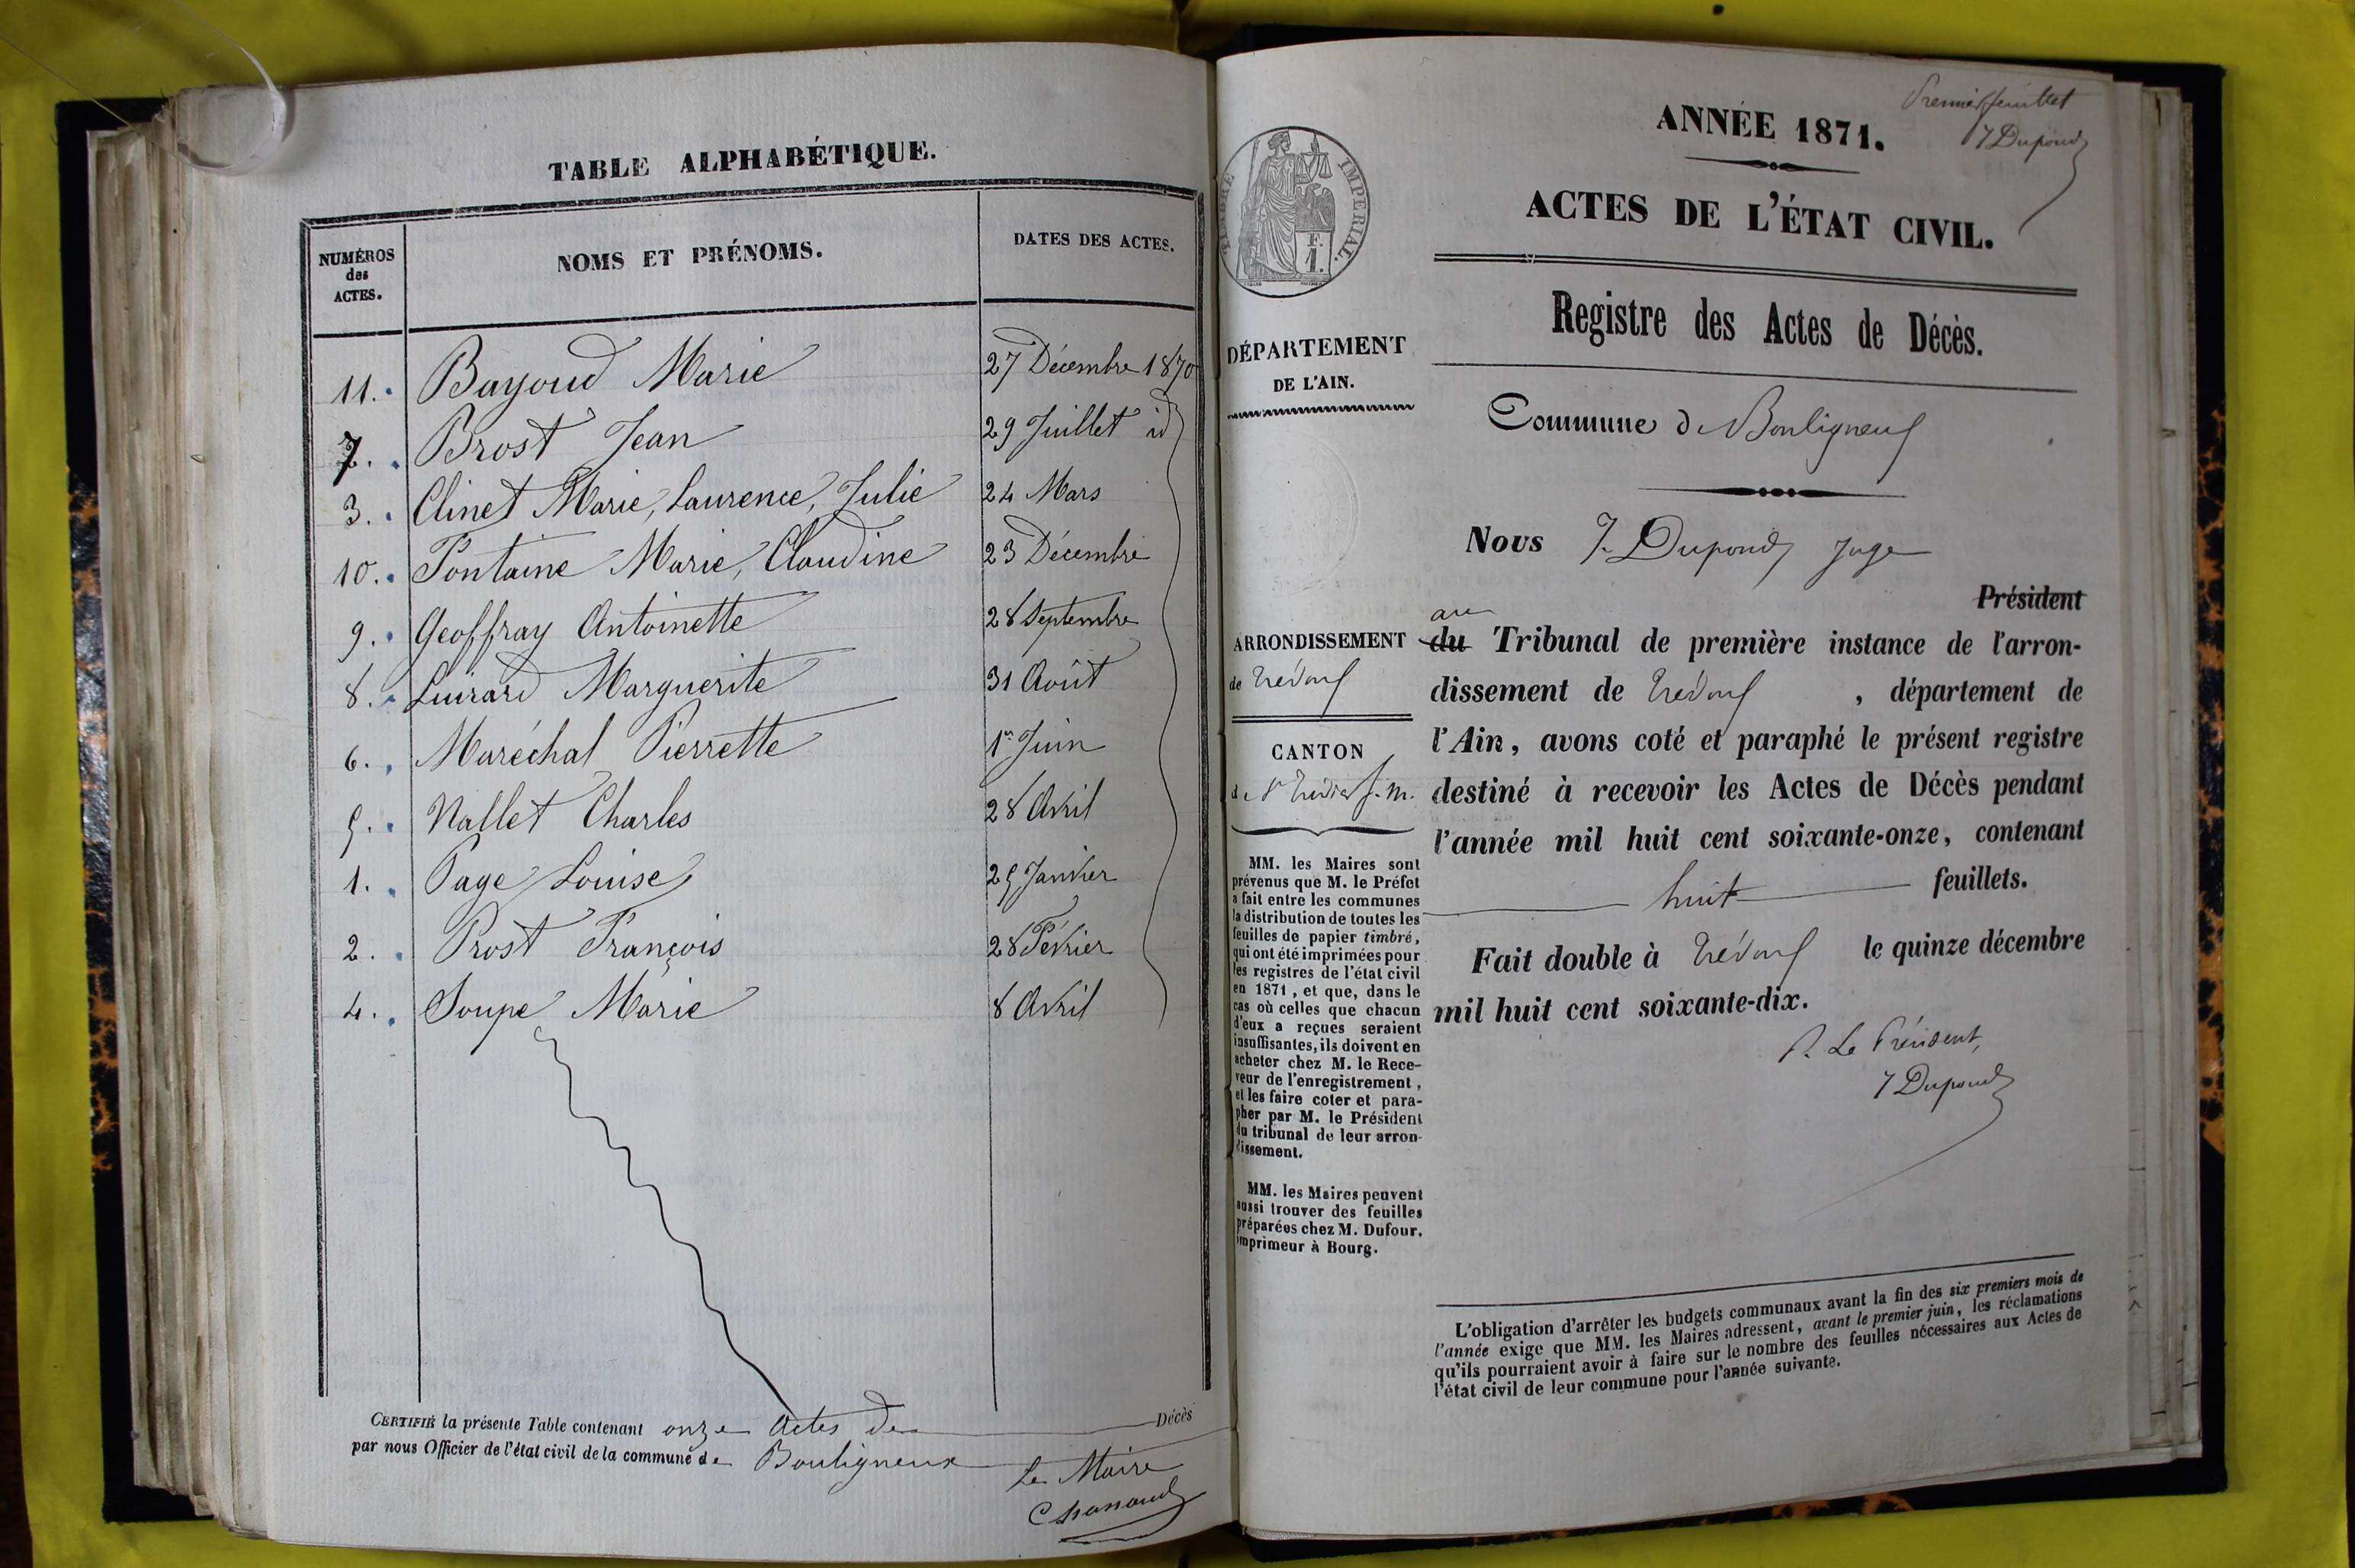 TABLE ALPHABÉTIQUE.
NUMÉROS
des
ACTES.
NOMS ET PRÉNOMS.
DATES DES ACTES.
11. Bayoud Marie 27 Décembre 1870
7. Brost Jean 29 Juillet id
3. Clinet Marie, Laurence, Julie 24 Mars
10. Fontaine Marie, Claudine 23 Décembre
9. Geoffray Antoinette 28 Septembre
8. Luirard Marguerite 31 Août
6. Maréchal Pierrette 1er Juin
5. Nallet Charles 28 Avril
1. Page Louise 25 Janvier
2. Prost François 28 Février
4. Soupe Marie 8 Avril
CERTIFIÉ la présente Table contenant onze Actes de Décès
par nous Officier de l'état civil de la commune de Bouligneux
Le Maire
Premier feuillet
J Dupond
ANNÉE 1871.
ACTES DE L'ÉTAT CIVIL.
Registre des Actes de Décès.
TIMBRE IMPÉRIAL.
F.
1.
DÉPARTEMENT
DE L'AIN.
Commune de Bouligneux
Nous J. Dupond Juge
Président
au
du Tribunal de première instance de l'arron-
dissement de Trévoux, département de
l'Ain, avons coté et paraphé le présent registre
destiné à recevoir les Actes de Décès pendant
l'année mil huit cent soixante-onze, contenant
huit feuillets.
Fait double à Trévoux le quinze décembre
mil huit cent soixante-dix.
P. Le Président,
J Dupond
ARRONDISSEMENT
de Trévoux
CANTON
de St Trivier s. m.
MM. les Maires sont
prévenus que M. le Préfet
a fait entre les communes
la distribution de toutes les
feuilles de papier timbré,
qui ont été imprimées pour
les registres de l'état civil
en 1871, et que, dans le
cas où celles que chacun
d'eux a reçues seraient
insuffisantes, ils doivent en
acheter chez M. le Rece-
veur de l'enregistrement,
et les faire coter et para-
pher par M. le Président
du tribunal de leur arron-
dissement.
MM. les Maires peuvent
aussi trouver des feuilles
préparées chez M. Dufour,
imprimeur à Bourg.
L'obligation d'arrêter les budgets communaux avant la fin des six premiers mois de
l'année exige que MM. les Maires adressent, avant le premier juin, les réclamations
qu'ils pourraient avoir à faire sur le nombre des feuilles nécessaires aux Actes de
l'état civil de leur commune pour l'année suivante.